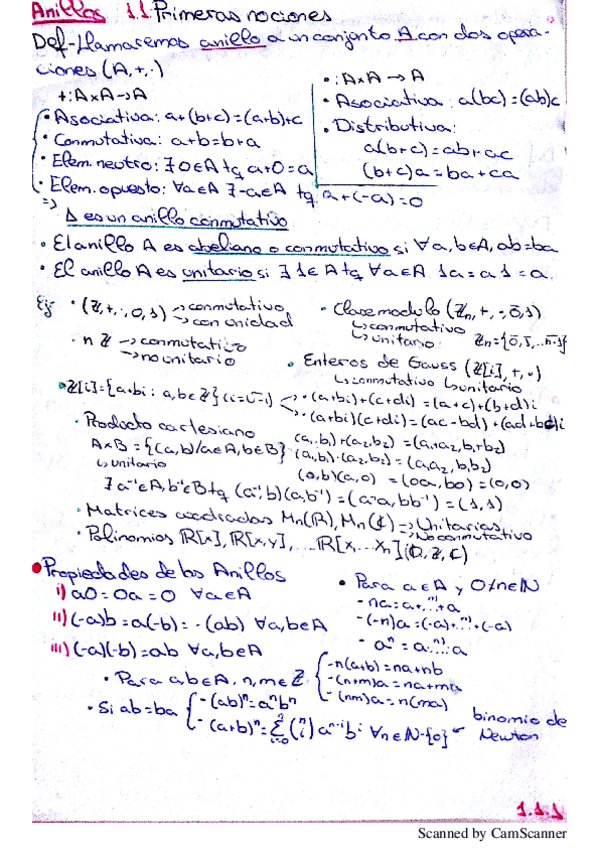 Anillos 1.1 Primeras nociones
Def-Llamaremos anillo a un conjunto A con dos opera-
ciones (A,+,·)
+: A×A→A
• Asociativa: a+(b+c)=(a+b)+c
• Conmutativa: a+b=b+a
• Elem. neutro: ∃ 0∈A tq a+0=a
• Elem. opuesto: ∀a∈A ∃-a∈A tq. a+(-a)=0
• : A×A → A
• Asociativa: a(bc)=(ab)c
• Distributiva:
a(b+c)=ab+ac
(b+c)a=ba+ca
=>
A es un anillo conmutativo
• El anillo A es abeliano o conmutativo si ∀a,b∈A, ab=ba
• El anillo A es unitario si ∃ 1∈A tq ∀a∈A 1a=a1=a.
Ej: • (ℤ,+,·,0,1) → conmutativo
→ con unidad
• nℤ → conmutativo
→ no unitario
• Clase modulo (ℤn,+,·,0̄,1̄)
↳ conmutativo
↳ unitario ℤn={0̄,1̄,...n-1}
• Enteros de Gauss (ℤ[i],+,·)
↳ conmutativo ↳ unitario
• ℤ[i]={a+bi : a,b∈ℤ} (i=√-1) • (a+bi)+(c+di)=(a+c)+(b+d)i
• (a+bi)(c+di)=(ac-bd)+(ad+bc)i
• Producto cartesiano
A×B={(a,b)/a∈A,b∈B}
↳ unitario
(a₁,b₁)+(a₂,b₂)=(a₁+a₂,b₁+b₂)
(a₁,b₁)·(a₂,b₂)=(a₁a₂,b₁b₂)
(0,b)(a,0)=(0a,b0)=(0,0)
∃ a⁻¹∈A, b⁻¹∈B tq (a⁻¹,b)(a,b⁻¹)=(a⁻¹a,bb⁻¹)=(1,1)
• Matrices cuadradas Mn(ℝ), Mn(ℂ) → Unitarias
→ No conmutativo
• Polinomios ℝ[x], ℝ[x,y], ... ℝ[x,...xn] (ℚ,ℤ,ℂ)
• Propiedades de los Anillos
i) a0=0a=0 ∀a∈A
ii) (-a)b=a(-b)=-(ab) ∀a,b∈A
iii) (-a)(-b)=ab ∀a,b∈A
• Para a∈A y 0≠n∈ℕ
- na=a+.ⁿ⁾.+a
- (-n)a=(-a)+.ⁿ⁾.+(-a)
- aⁿ=a.ⁿ⁾.a
• Para a,b∈A, n,m∈ℤ
- n(a+b)=na+nb
- (n+m)a=na+ma
- (nm)a=n(ma)
• Si ab=ba
- (ab)ⁿ=aⁿbⁿ
- (a+b)ⁿ=∑ⁿᵢ₌₀ (n i) aⁿ⁻ⁱbⁱ ∀n∈ℕ-{0} binomio de
Newton
1.1.1
Scanned by CamScanner